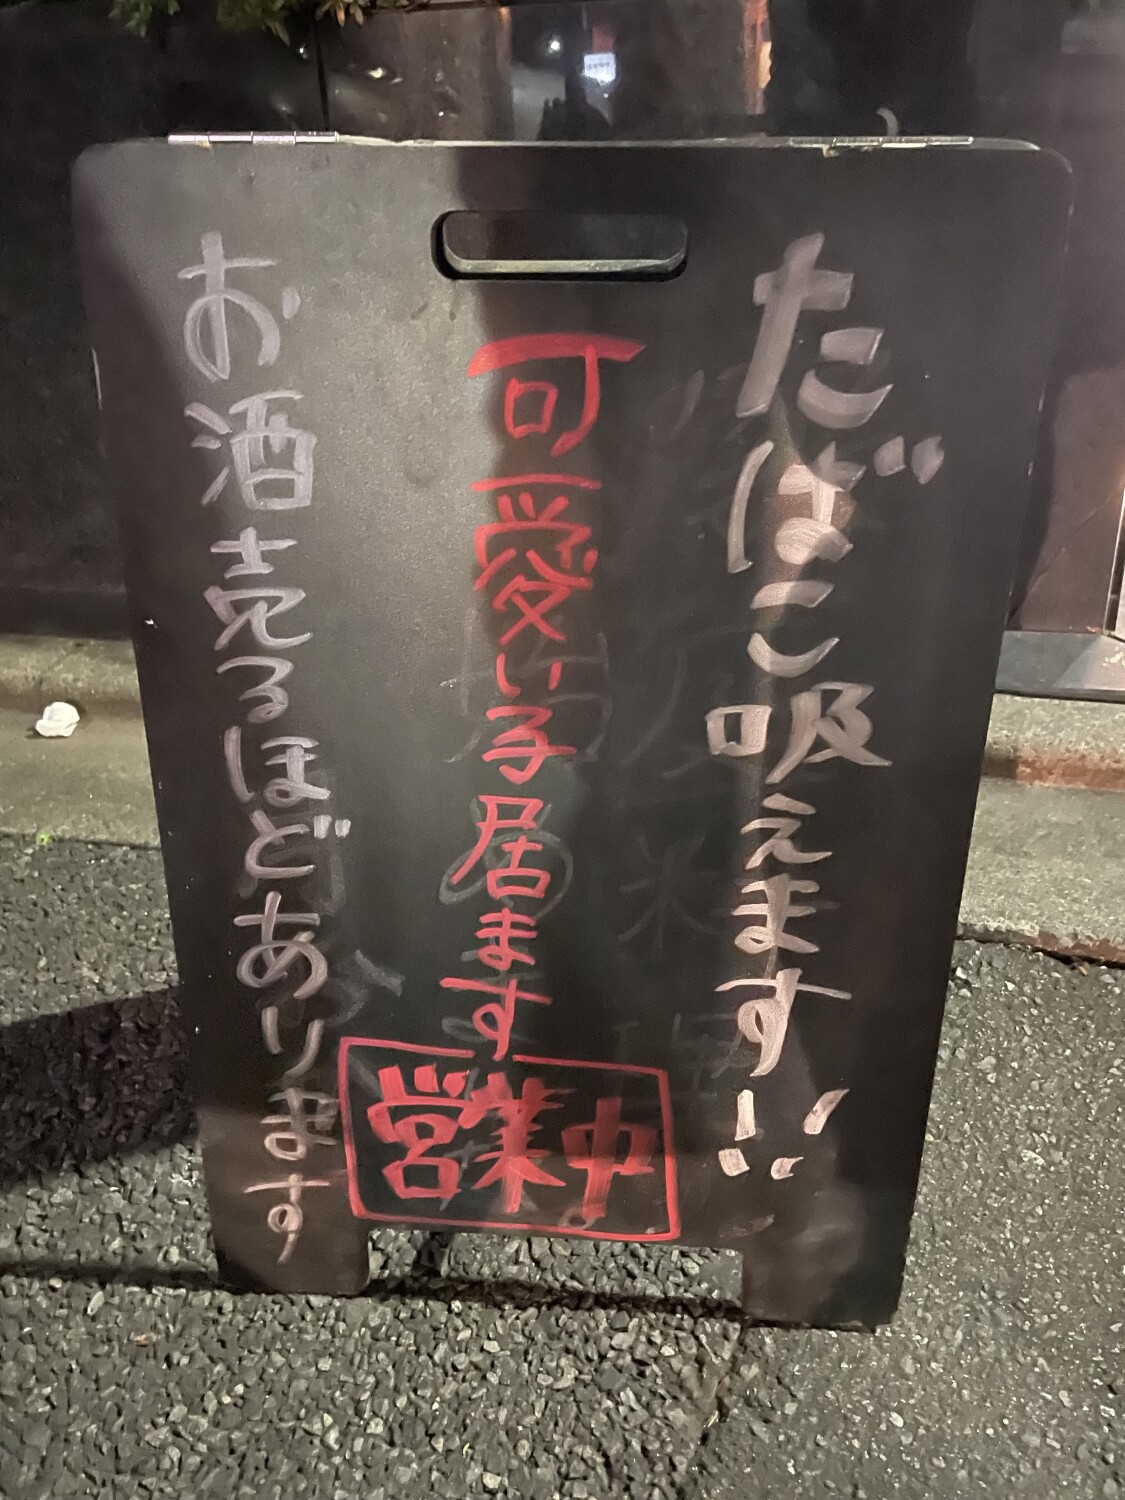 たばこ吸えます!!
可愛い子居ます
お酒売るほどあります
営業中